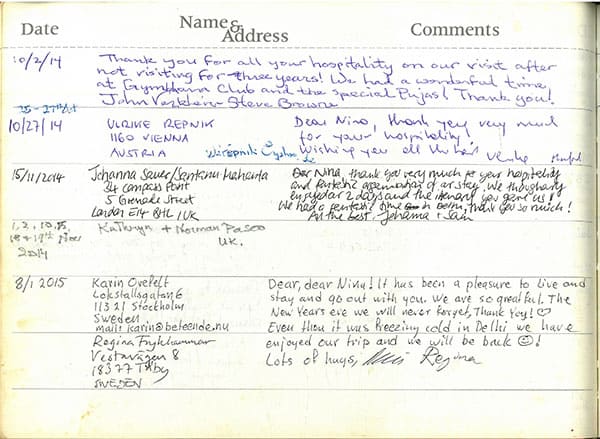 Date Name & Address Comments
10/2/14 Thank you for all your hospitality on our visit after
not visiting for three years! We had a wonderful time
at Gymkhana Club and the special Pujas! Thank you!
John Steve Browne
25-27 Oct
10/27/14 ULRIKE REPNIK Dear Nino, thank you very much
1160 VIENNA for your hospitality
AUSTRIA Wishing you all the best Ulrike
15/11/2014 Johanna Sauer/Santanu Mahanta Dear Nina, thank you very much for your hospitality
24 Compass Point and fantastic of our stay. We thoroughly
5 Grenade Street enjoyed our 2 days and the itinerary you gave us!
London E14 8HL / UK We had a fantastic time in Delhi, thank you so much!
All the best, Johanna + San
1, 2, Kathryn + Norman
18 + 19th Nov UK.
2014
8/1 2015 Karin Ovefelt Dear, dear Ninu! It has been a pleasure to live and
Lokstallsgatan 6 stay and go out with you. We are so greatful. The
113 21 Stockholm New Years eve we will never forget, Thank You! ♡
Sweden
mail: karin@beteende.nu Even thou it was freezing cold in Delhi we have
Regina Frykhammar enjoyed our trip and we will be back ☺!
Vestavägen 8 Lots of hugs, Regina
18377 Täby
SWEDEN